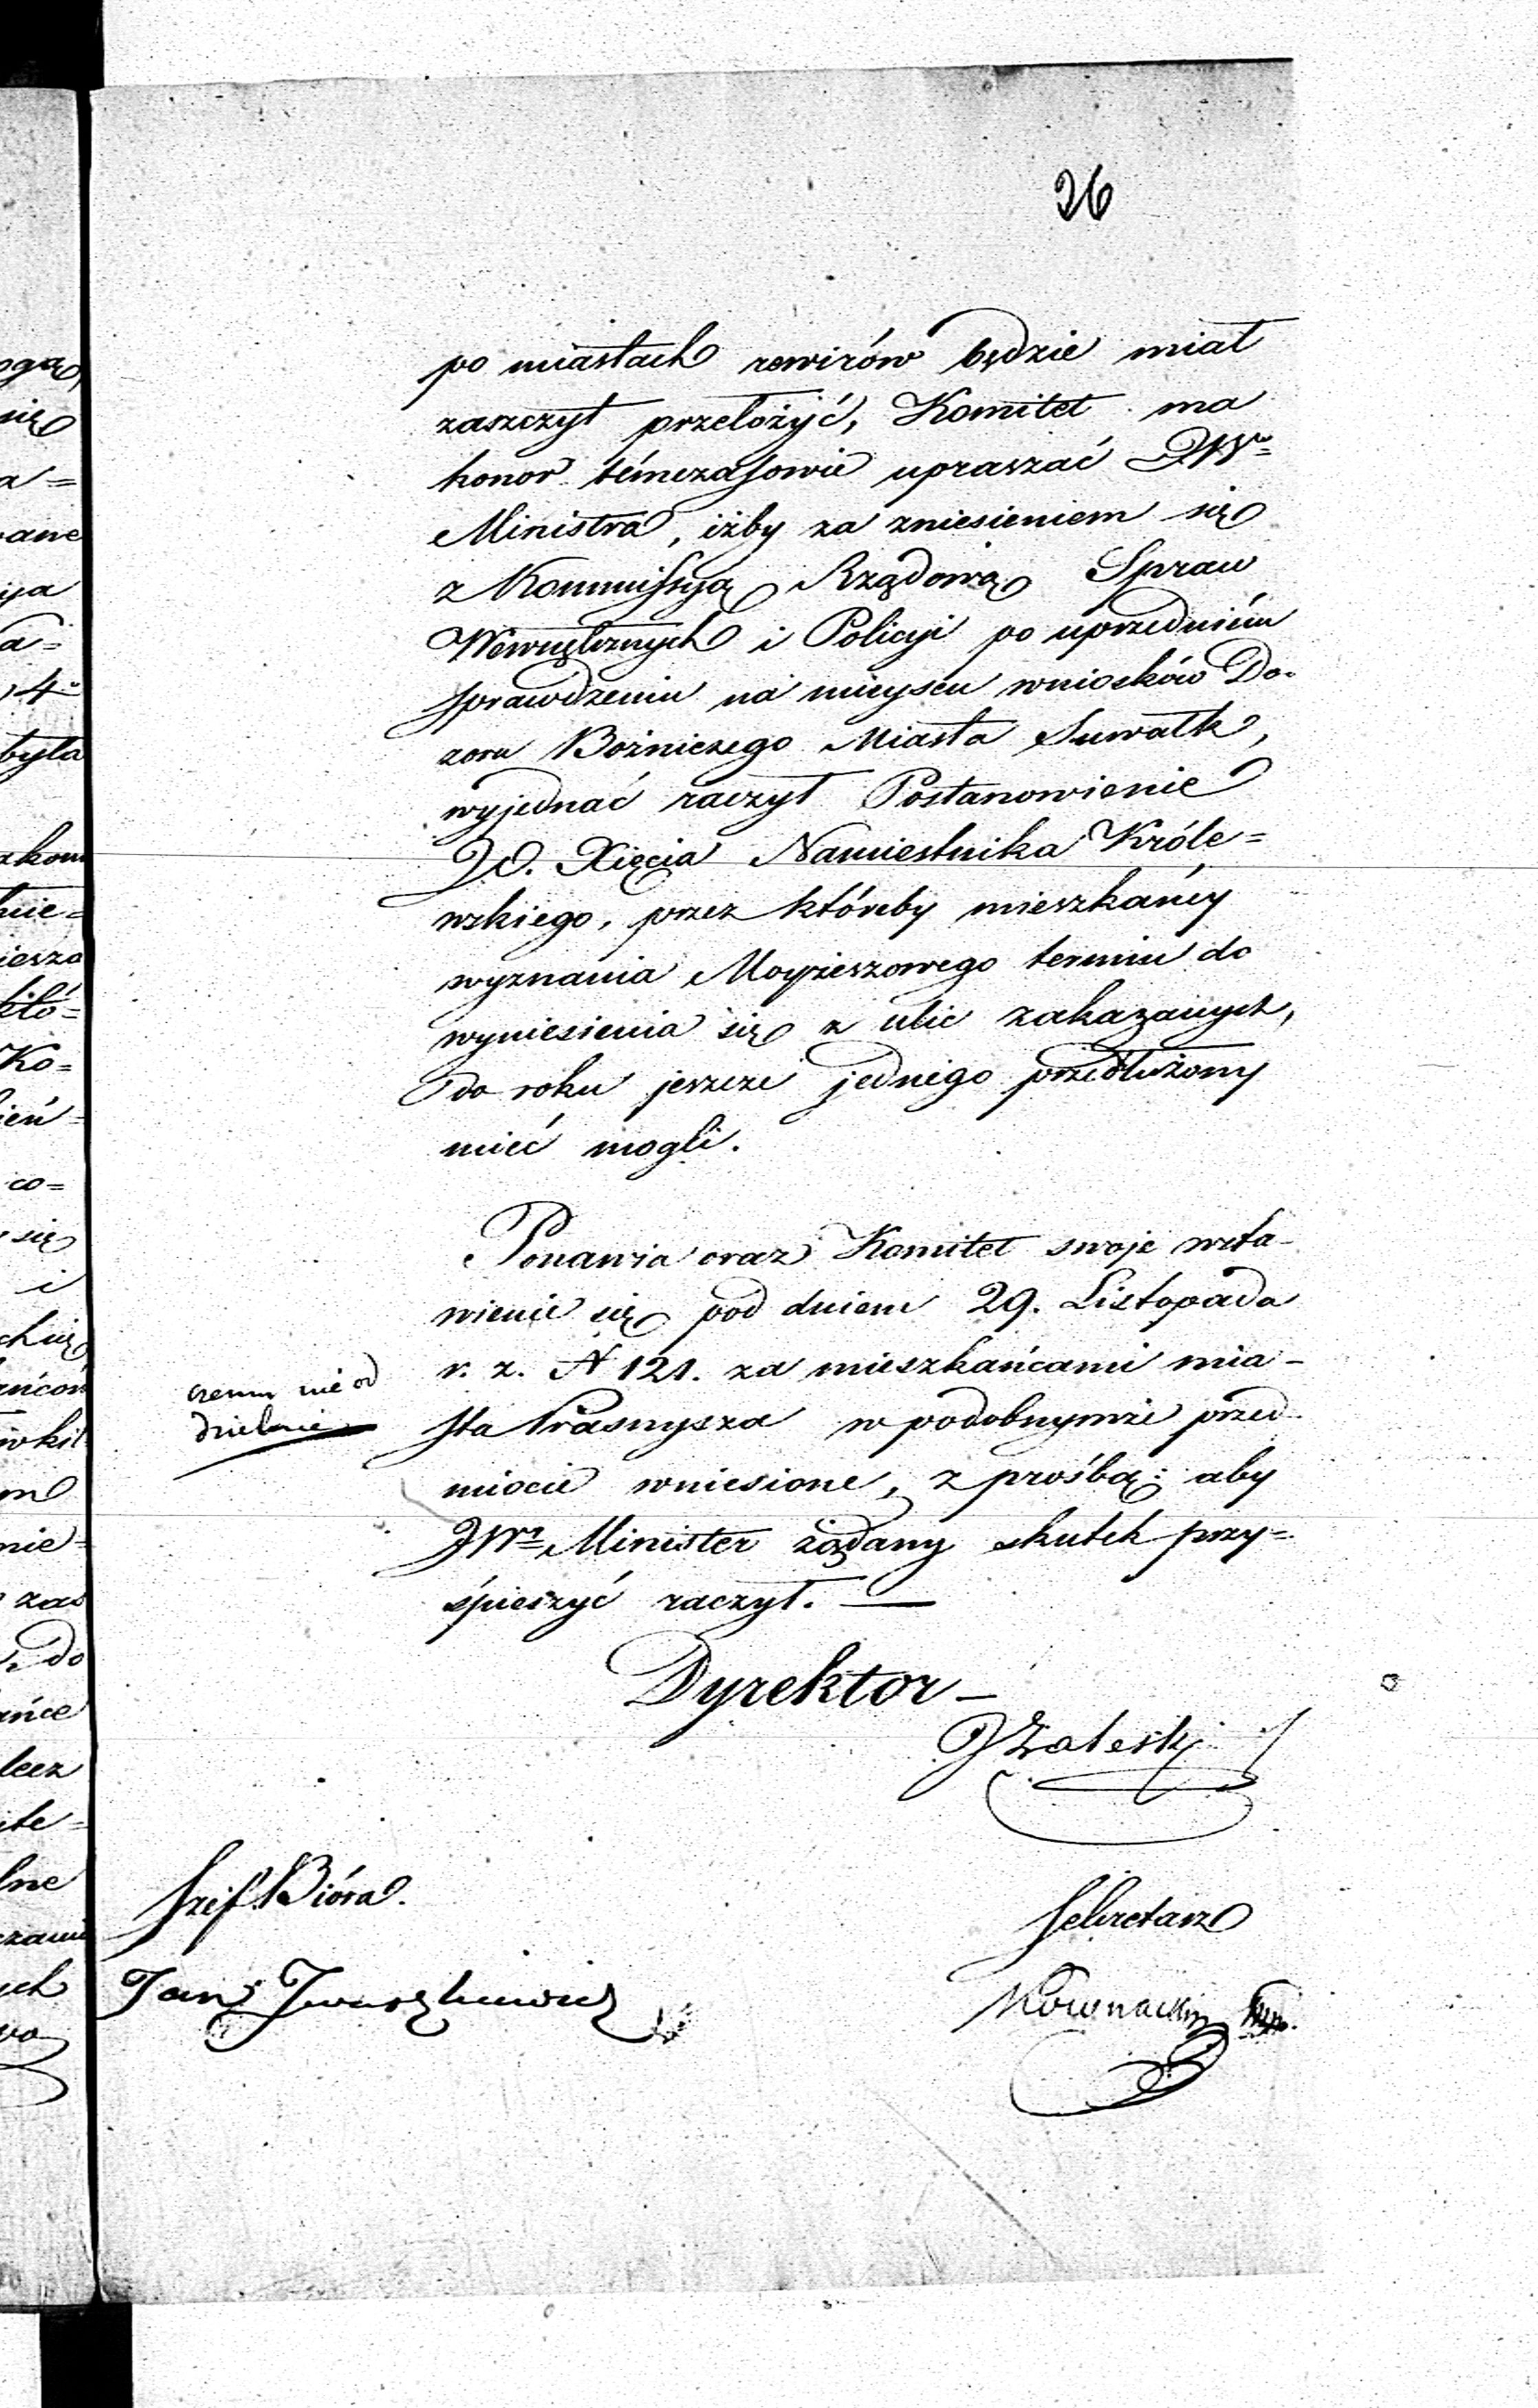 26
po miastach rewirów będzie miał
zaszczyt przełożyć, Komitet ma
honor témczasowie upraszać JWo
Ministra, iżby za zniesieniem się
z Kommissyą Rządową Spraw
Wewnętrznych i Policyi po uprzedniém
sprawdzeniu na mieyscu wniosków Do-
zoru Bożniczego Miasta Suwałk,
wyjednać raczył Postanowienie
JO. Xięcia Namiestnika Króle=
wskiego, przez któreby mieszkańcy
wyznania Moyżeszowego termin do
wyniesienia się z ulic zakazanych,
do roku jeszcze jednego przedłużony
mieć mogli.
Ponawia oraz Komitet swoje wsta-
wienie się pod dniem 29. Listopada
r. z. N 121. za mieszkańcami mia-
sta Prasnysza w podobnymże przed-
miocie wniesione, z prośbą: aby
JWy Minister żądany skutek przy=
śpieszyć raczył. —
czemu nie od
dzielnie
Dyrektor –
JZaleski
Szef Bióra.
Sekretarz
Jan
Nownacki
ogą
się
a=
ane
ya
a=
4
była
zkom
nie=
iesza
któ=
Ko=
ień=
co=
się
i
chcię
ańców
nie=
zas
Do
ańce
lecz
ite=
lne
ych